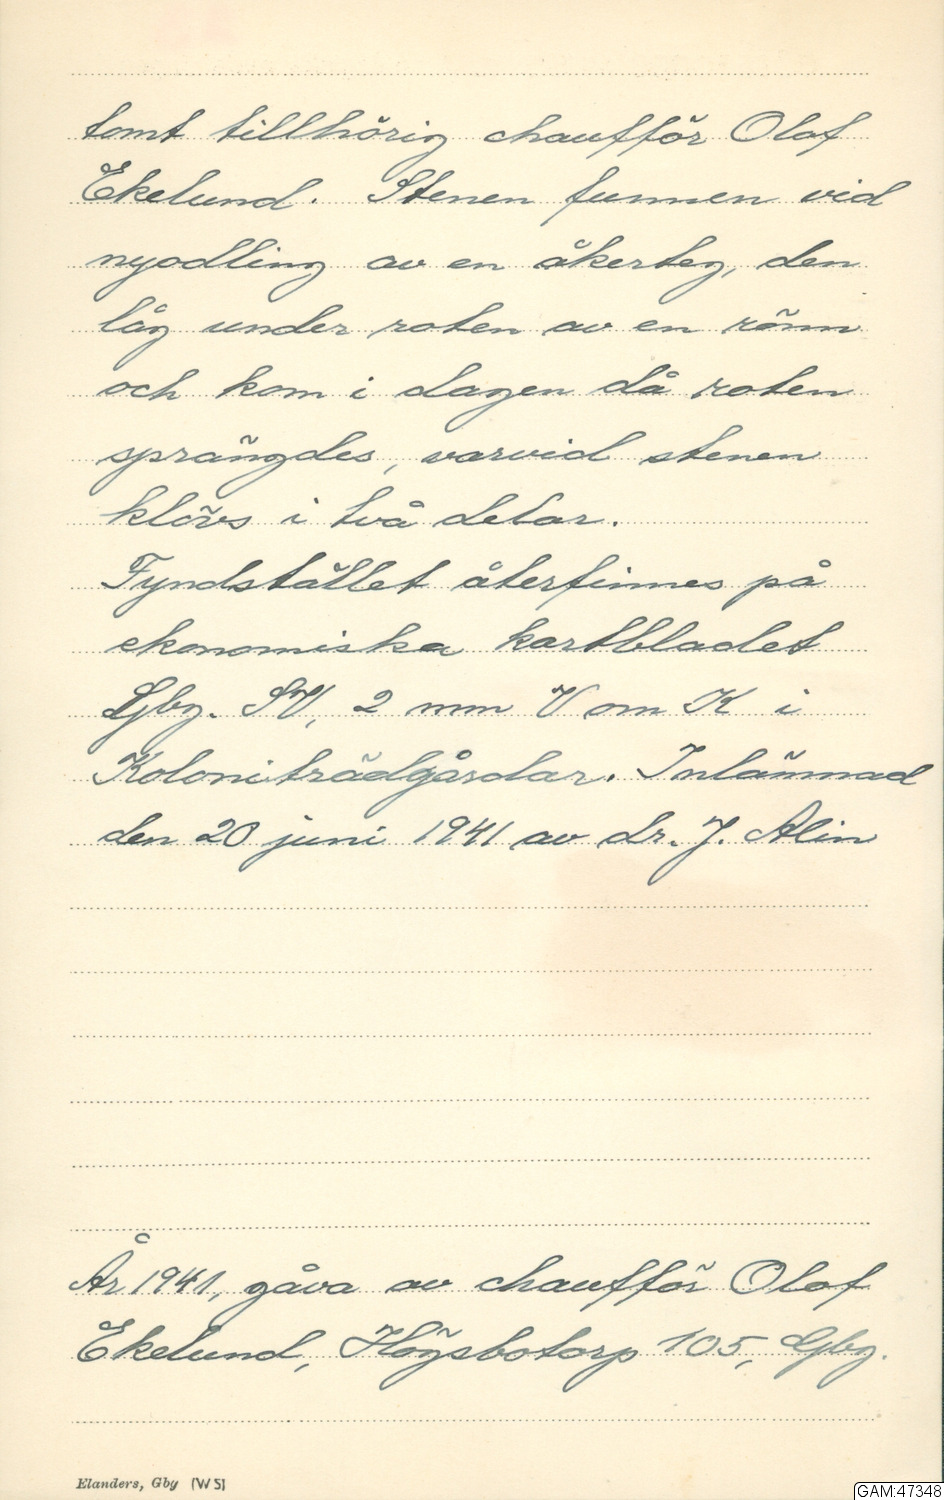 tomt tillhörig chaufför Olof
Ekelund. Stenen funnen vid
nyodling av en åkerteg, den
låg under roten av en rönn
och kom i dagen då roten
sprängdes, varvid stenen
klövs i två delar.
Fyndstället återfinnes på
ekonomiska kartbladet
Gbg. SV, 2 mm V om K i
Koloniträdgårdar. Inlämnad
den 20 juni 1941 av dr. J. Alin
År 1941, gåva av chaufför Olof
Ekelund, Högsbotorp 105, Gbg.
Elanders, Gby (WS)
GAM:47348